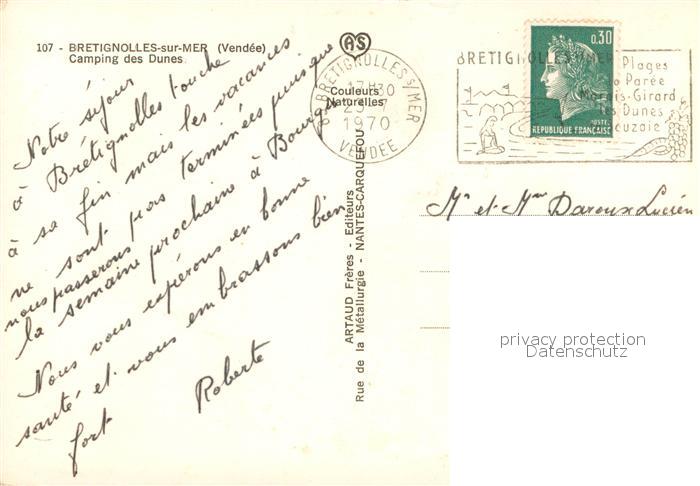 107 - BRETIGNOLLES-sur-MER (Vendée)
Camping des Dunes
AS
Couleurs
Naturelles
BRETIGNOLLES S/MER
17H30
1970
VENDEE
0,30
POSTES
REPUBLIQUE FRANÇAISE
BRETIGNOLLES S/MER
Plages
Parée
Marais-Girard
les Dunes
Notre séjour
à Brétignolles touche
à sa fin mais les vacances
ne sont pas terminées puisque
nous passerons
la semaine prochaine à Bourges
Nous vous espérons en bonne
santé et vous embrassons bien
fort
Roberte
ARTAUD Frères - Editeurs
Rue de la Métallurgie - NANTES-CARQUEFOU
Mr et Mme Daroux Lucien
privacy protection
Datenschutz